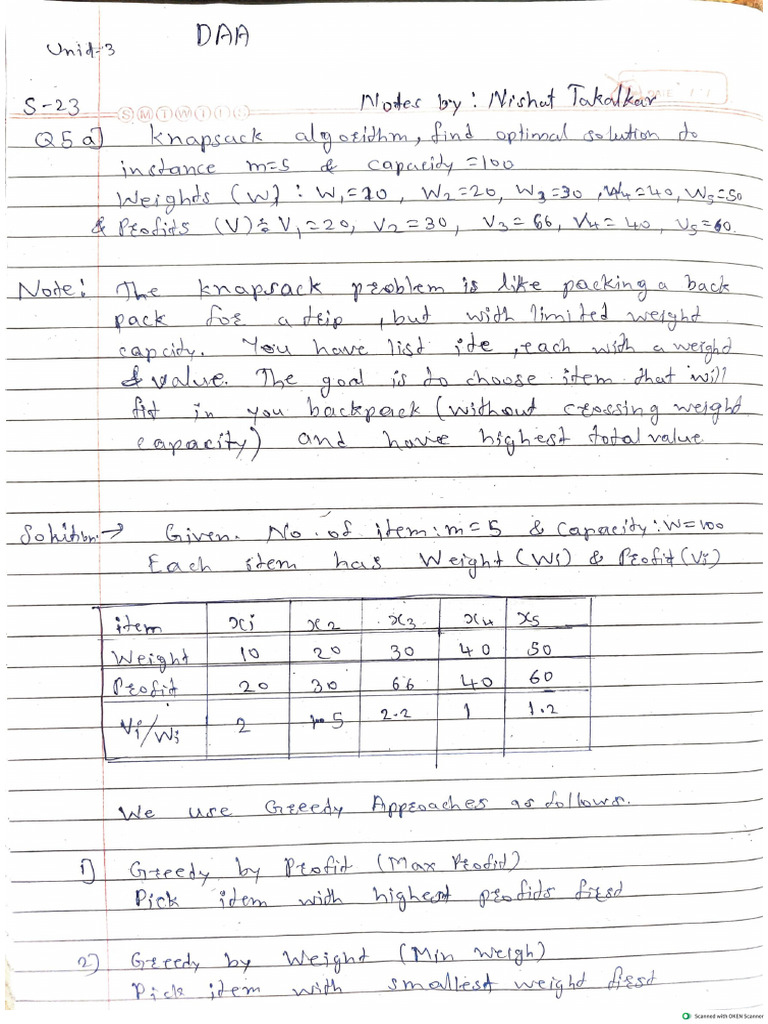 DAA
Unit-3
S-23
SMTWTFS
DATE
Notes by: Nishat Takalkar
Q5a] Knapsack algorithm, find optimal solution to
instance m=5 & capacity =100
Weights (W) : W1=10, W2=20, W3=30, W4=40, W5=50
& Profits (V) : V1=20, V2=30, V3=66, V4=40, V5=60.
Note: The knapsack problem is like packing a back
pack for a trip, but with limited weight
capcity. You have list ite, each with a weight
& value. The goal is to choose item that will
fit in you backpack (without crossing weight
capacity) and have highest total value
Solution:→ Given. No. of item: m=5 & Capacity: W=100
Each item has Weight (Wi) & Profit (Vi)
item x1 x2 x3 x4 x5
Weight 10 20 30 40 50
Profit 20 30 66 40 60
Vi/Wi 2 1.5 2.2 1 1.2
We use Greedy Approaches as follows.
1) Greedy by Profit (Max Profit)
Pick item with highest profits first
2) Greedy by Weight (Min weigh)
Pick item with smallest weight first
Scanned with OKEN Scanner